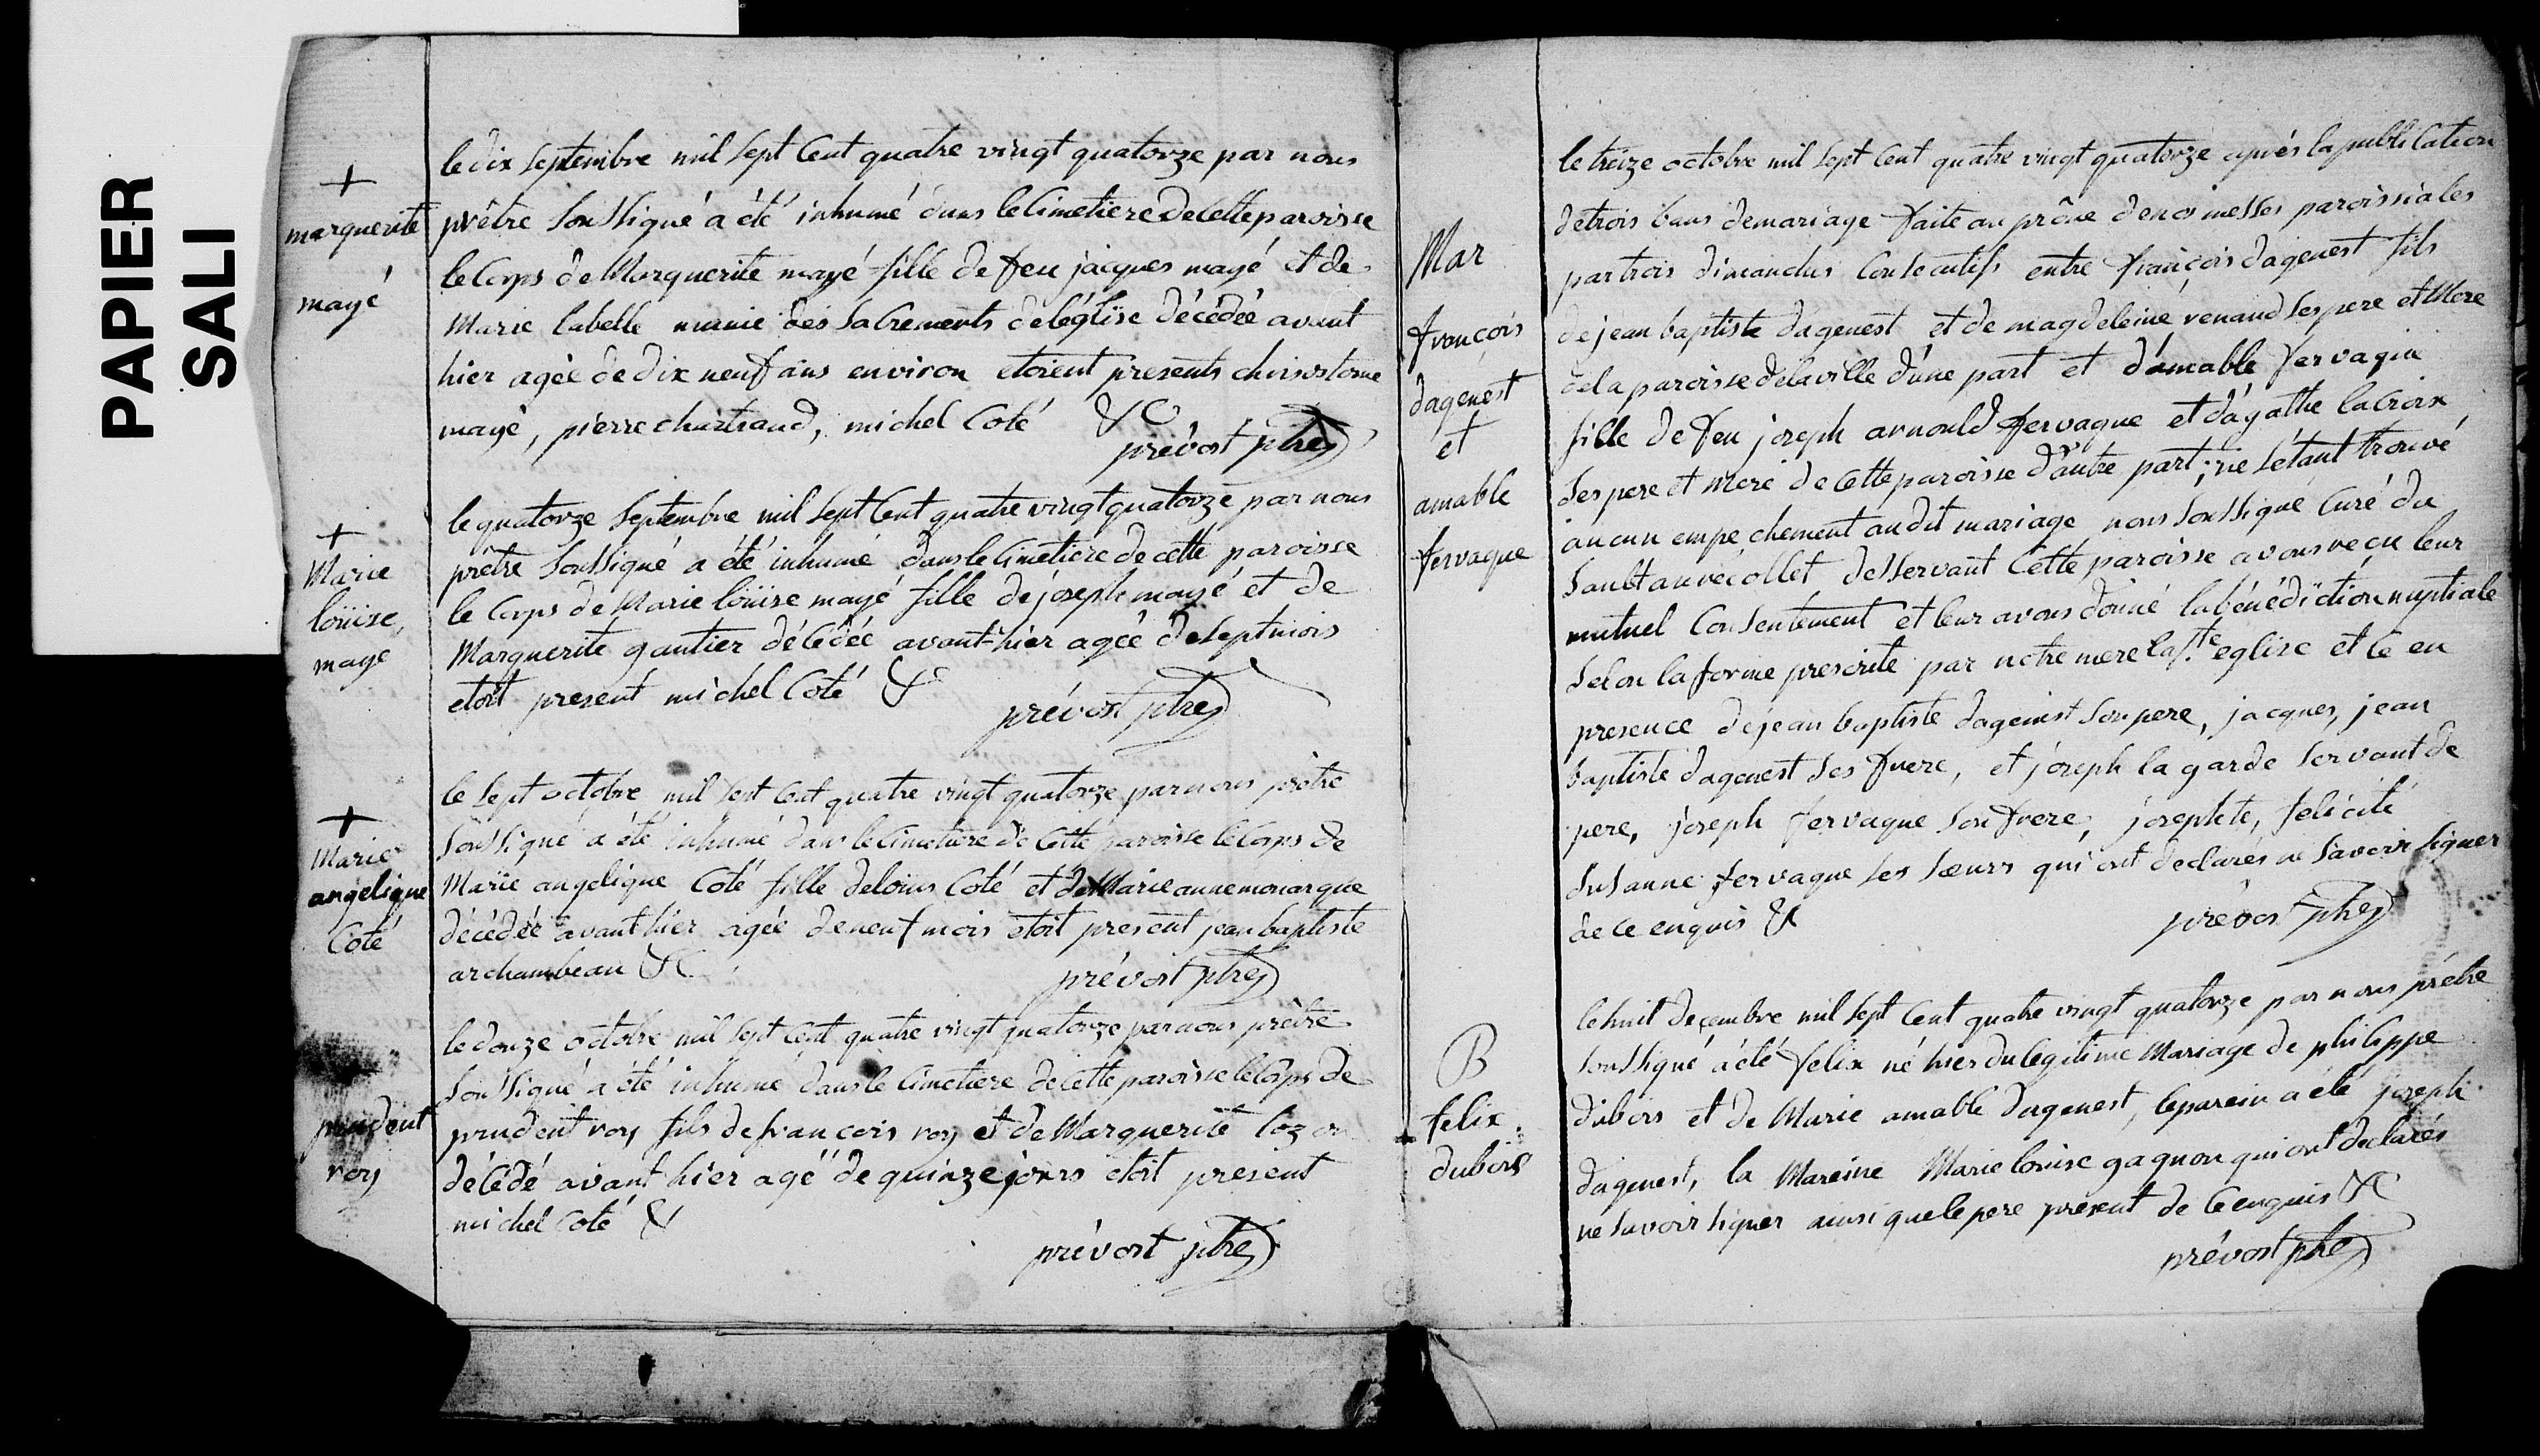 PAPIER
SALI
+
marguerite
mayé
le dix septembre mil sept Cent quatre vingt quatorze par nous
prêtre Soussigné a été inhumé dans le Cimetiere de Cette paroisse
le Corps de Marguerite mayé fille de feu jacques mayé et de
Marie labelle munie des Sacrements de léglise décédée avant
hier agée de dix neuf ans environ etoient presents chrisostome
mayé, pierre chartrand, michel Coté &c
prévost ptre
+
Marie
loüise
mayé
le quatorze Septembre mil sept Cent quatre vingt quatorze par nous
prêtre Soussigné a été inhumé dans le Cimetiere de cette paroisse
le Corps de Marie loüise mayé fille de joseph mayé et de
Marguerite gautier décédée avant-hier agée de Sept mois
etoit present michel Coté &
prévost ptre
+
Marie
angelique
Coté
le Sept octobre mil Sept Cent quatre vingt quatorze par nous prêtre
Soussigné a été inhumé dans le Cimetiere de Cette paroisse le Corps de
Marie angelique Coté fille de louis Coté et de Marie anne monarque
décédée avant hier agée de neuf mois etoit present jean baptiste
archambeau &c
prévost ptre
prudent
roy
le douze octobre mil Sept Cent quatre vingt quatorze par nous prêtre
Soussigné a été inhumé dans le Cimetiere de Cette paroisse le Corps de
prudent roy fils de françois roy et de Marguerite lozon
décédé avant hier agé de quinze jours etoit present
michel Coté &
prévost ptre
Mar
françois
dagenest
et
amable
fervaque
le treize octobre mil Sept Cent quatre vingt quatorze après la publication
de trois bans de mariage faite au prône de nos messes paroissiales
par trois dimanches Consecutifs entre françois dagenest fils
de jean baptiste dagenest et de magdeleine renaud Ses pere et Mere
de la paroisse de la ville d'une part et d'amable fervaque
fille de feu joseph arnould fervaque et d'agathe lacroix
Ses pere et Mere de Cette paroisse d'autre part; ne Sétant trouvé
aucun empechement audit mariage nous Soussigné Curé du
Sault au récollet desservant Cette paroisse avons reçu leur
mutuel Consentement et leur avons donné la bénédiction nuptiale
Selon la forme prescrite par notre mere la Ste eglise et Ce en
presence de jean baptiste dagenest Son pere, jacques, jean
baptiste dagenest Ses frere, et joseph la garde Servant de
pere, joseph fervaque Son frere, josephte, felicité
Susanne fervaque Ses Sœurs qui ont declarés ne Savoir Signer
de ce enquis &
prévost ptre
B
felix
dubois
le huit decembre mil Sept Cent quatre vingt quatorze par nous prêtre
Soussigné a été felix né hier du legitime Mariage de philippe
dubois et de Marie amable dagenest, le parein a été joseph
dagenest, la Mareine Marie louise gagnon qui ont declarés
ne Savoir Signer ainsi que le pere present de Ce enquis &c
prévost ptre